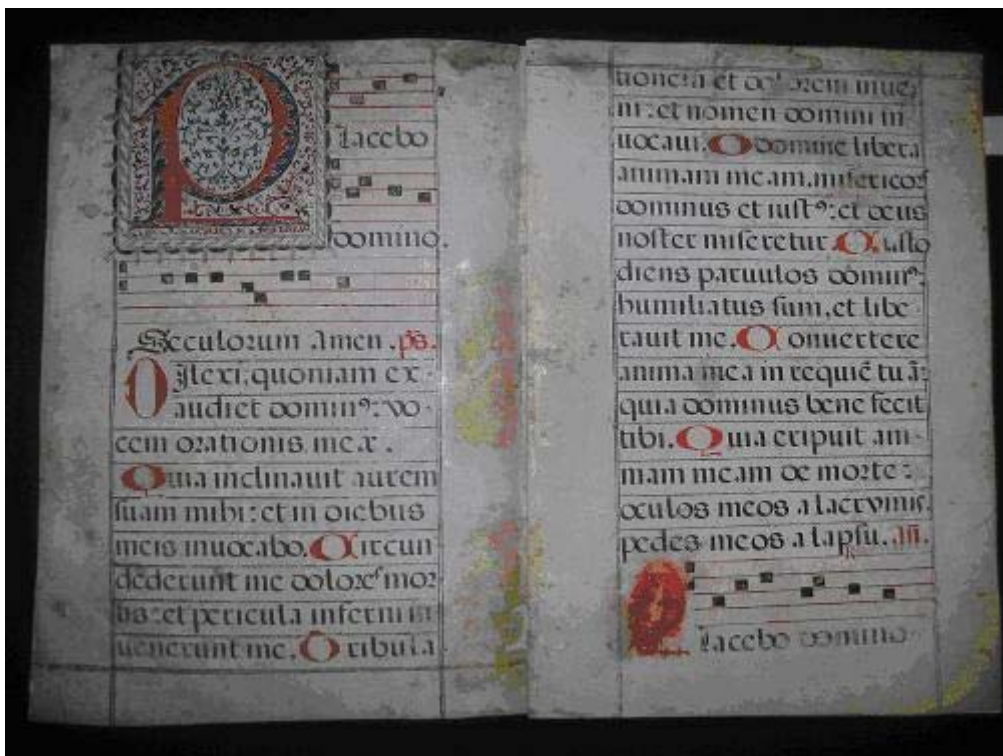 Placebo
domino.
Seculorum amen. ps.
Dilexi, quoniam ex-
audiet dominꝰ: vo-
cem orationis meæ.
Quia inclinauit aurem
suam mihi: et in diebus
meis inuocabo. Circun
dederunt me dolores mor
tis: et pericula inferni in
uenerunt me. Tribula-
tionem et dolorem inue
ni: et nomen domini in
uocaui. O domine libera
animam meam, misericors
dominus et iustꝰ: et deus
noster miseretur. Custo
diens paruulos dominꝰ:
humiliatus sum, et libe
rauit me. Conuertere
anima mea in requiē tuā:
quia dominus bene fecit
tibi. Quia eripuit ani-
mam meam de morte:
oculos meos a lacrymis.
pedes meos a lapsu. añ.
Placebo domino